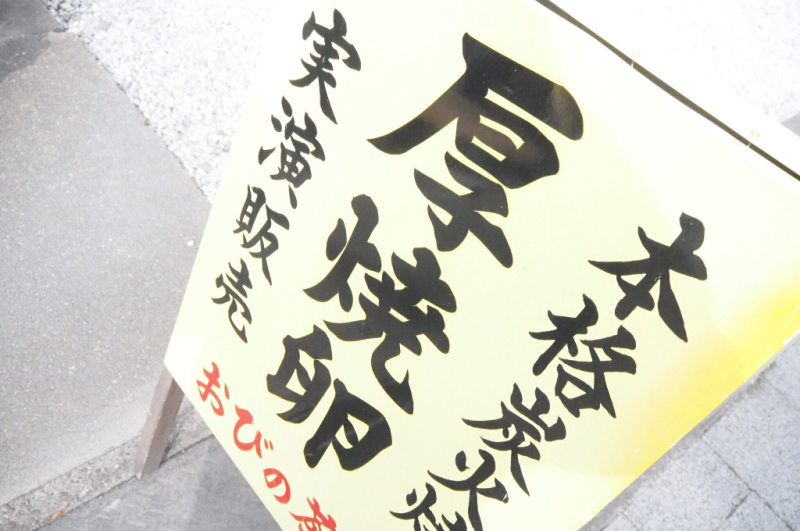 本格炭火焼
厚焼卵
実演販売
おびの